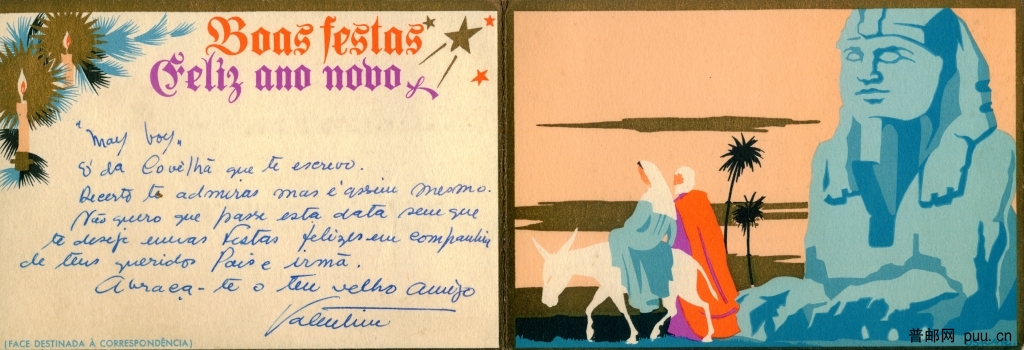 Boas festas
Feliz ano novo
"May boy"
É da Covilhã que te escrevo.
Decerto te admiras mas é assim mesmo.
Não quero que passe esta data sem que
te deseje umas Festas felizes em companhia
de teus queridos Pais e irmã.
Abraça-te o teu velho amigo
Valentim
(FACE DESTINADA À CORRESPONDÊNCIA)
普邮网 puu.cn